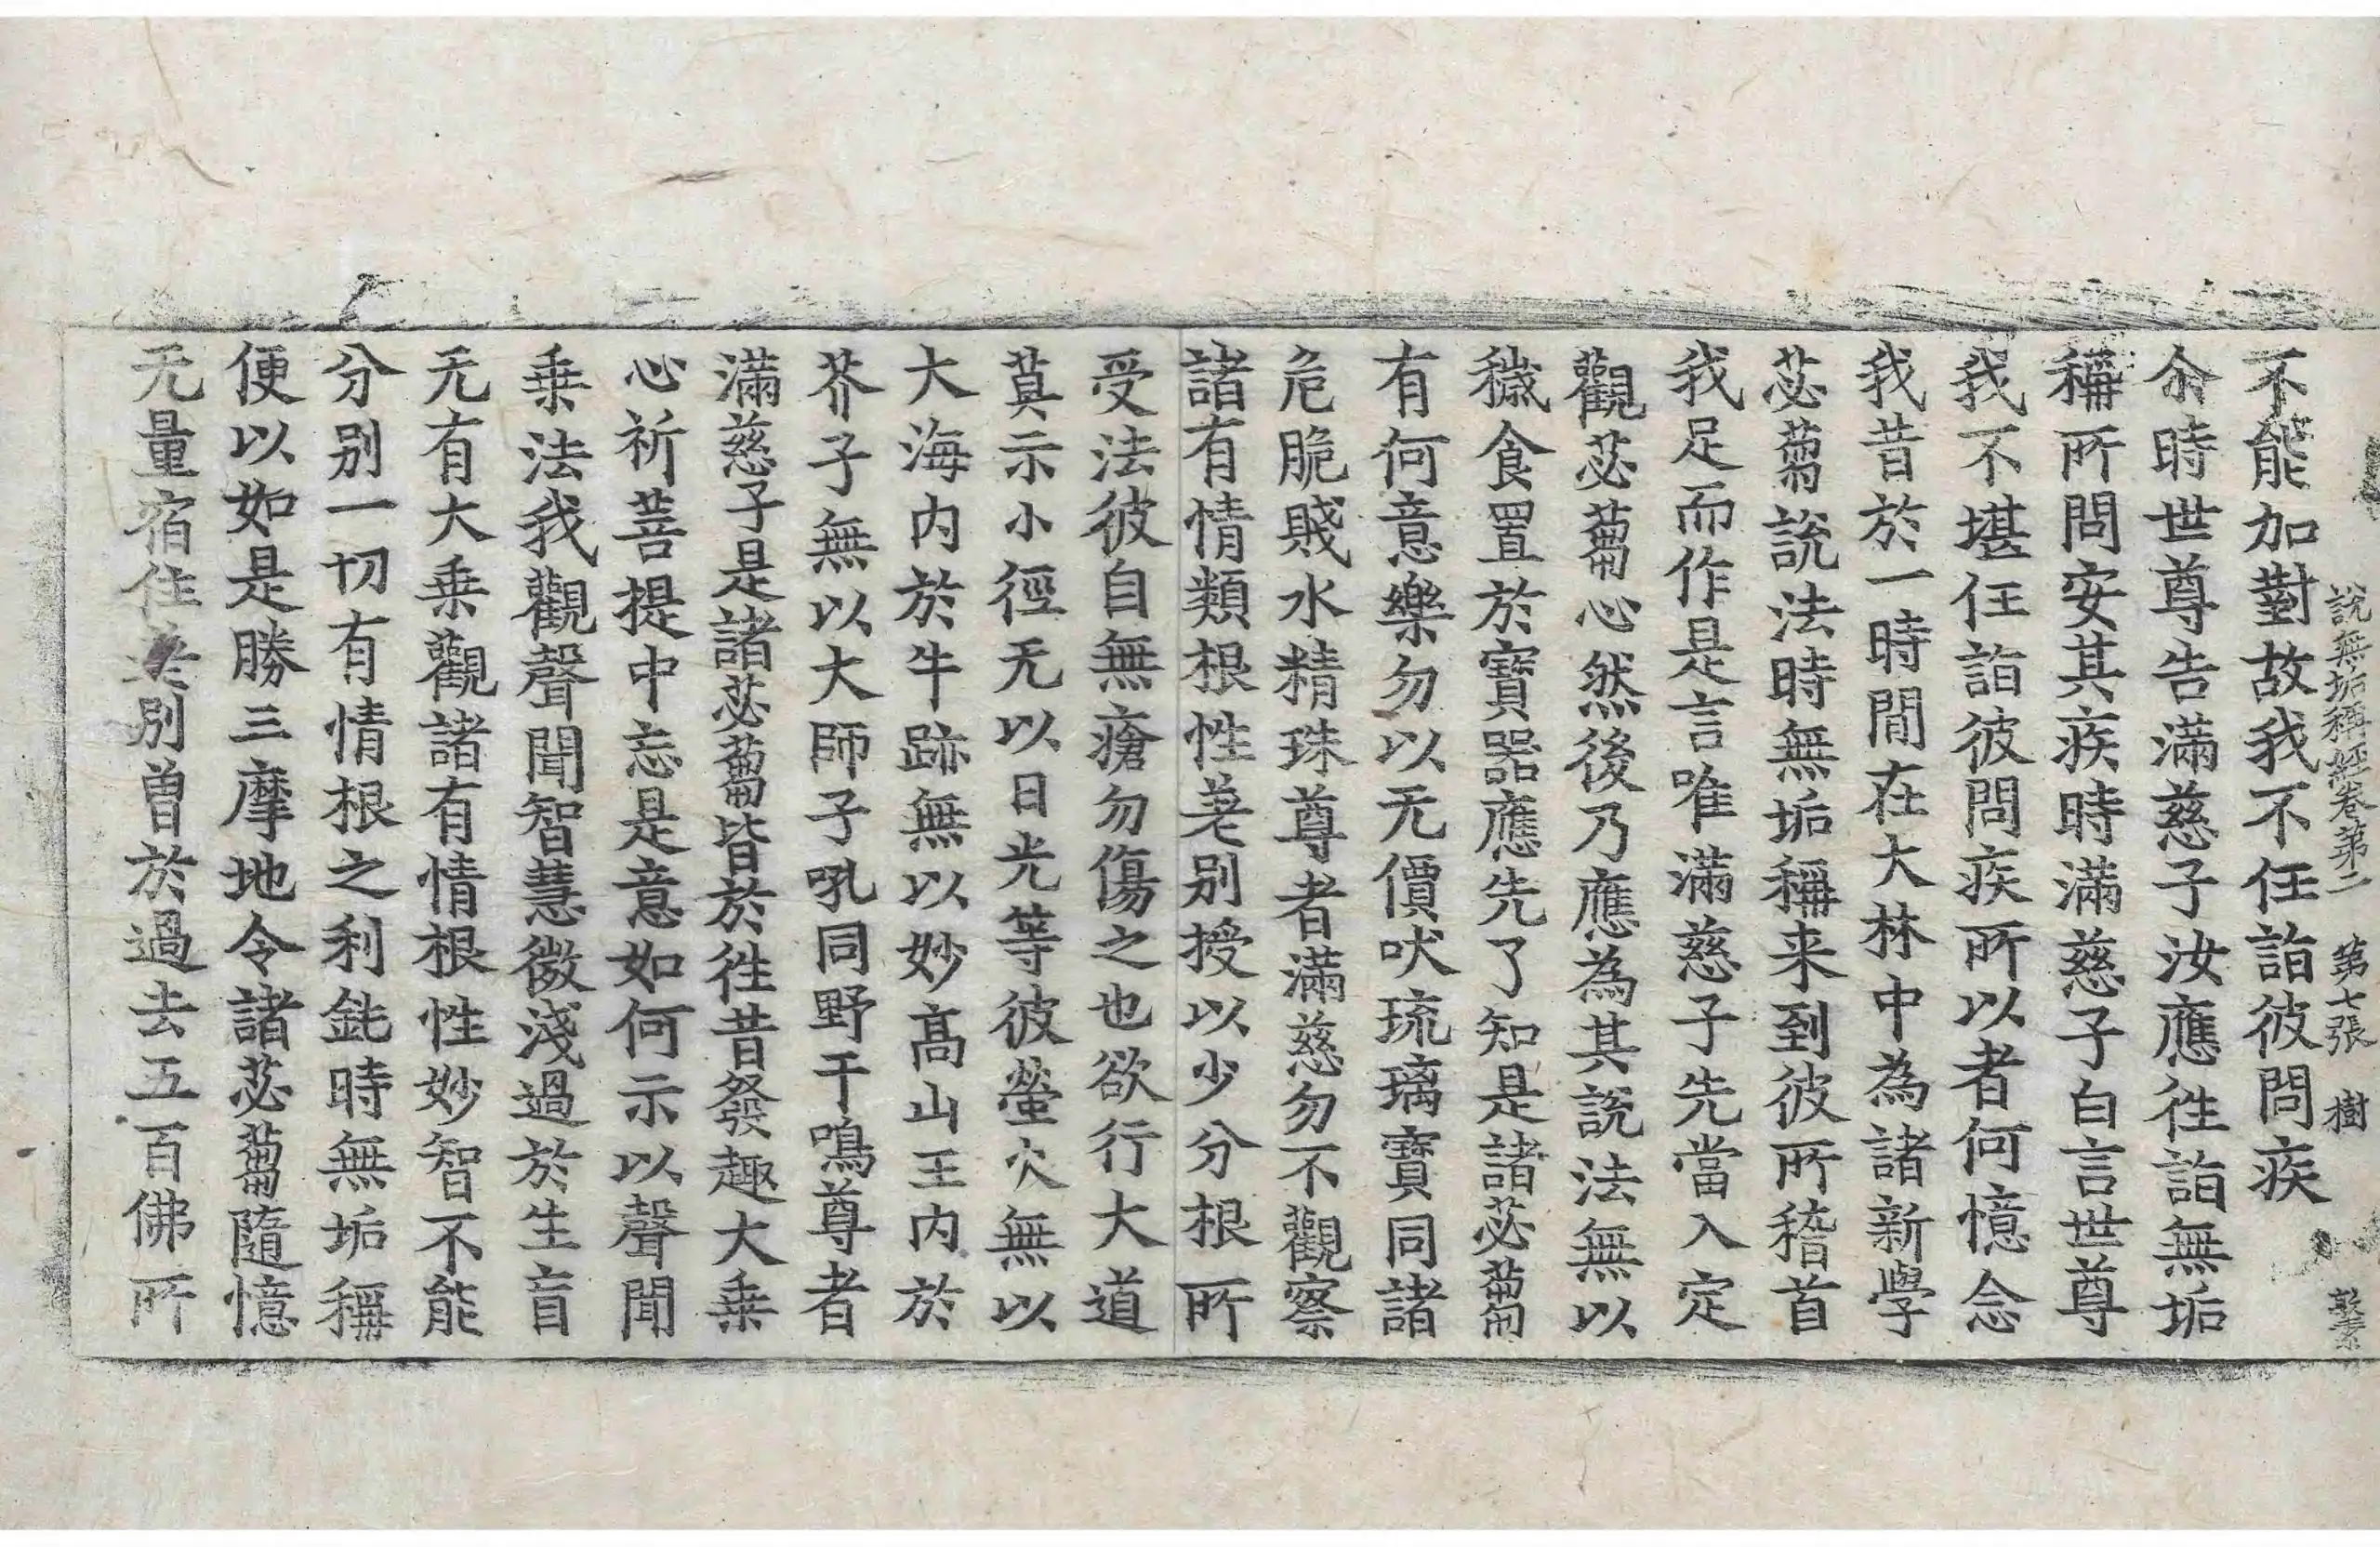 說無垢稱經卷第二 第七張 樹
不能加對故我不任詣彼問疾
尒時世尊告滿慈子汝應徃詣無垢
稱所問安其疾時滿慈子白言世尊
我不堪任詣彼問疾所以者何憶念
我昔於一時間在大林中為諸新學
苾蒭說法時無垢稱来到彼所稽首
我足而作是言唯滿慈子先當入定
觀苾蒭心然後乃應為其說法無以
穢食置於寶器應先了知是諸苾蒭
有何意樂勿以无價吠琉璃寶同諸
危脆賤水精珠尊者滿慈勿不觀察
諸有情類根性差別授以少分根所
受法彼自無瘡勿傷之也欲行大道
莫示小徑无以日光等彼螢火無以
大海内於牛跡無以妙高山王内於
芥子無以大師子吼同野干鳴尊者
滿慈子是諸苾蒭皆於徃昔發趣大乗
心祈菩提中忘是意如何示以聲聞
乗法我觀聲聞智慧微淺過於生盲
无有大乗觀諸有情根性妙智不能
分别一切有情根之利鈍時無垢稱
便以如是勝三摩地令諸苾蒭隨憶
无量宿住差別曾於過去五百佛所